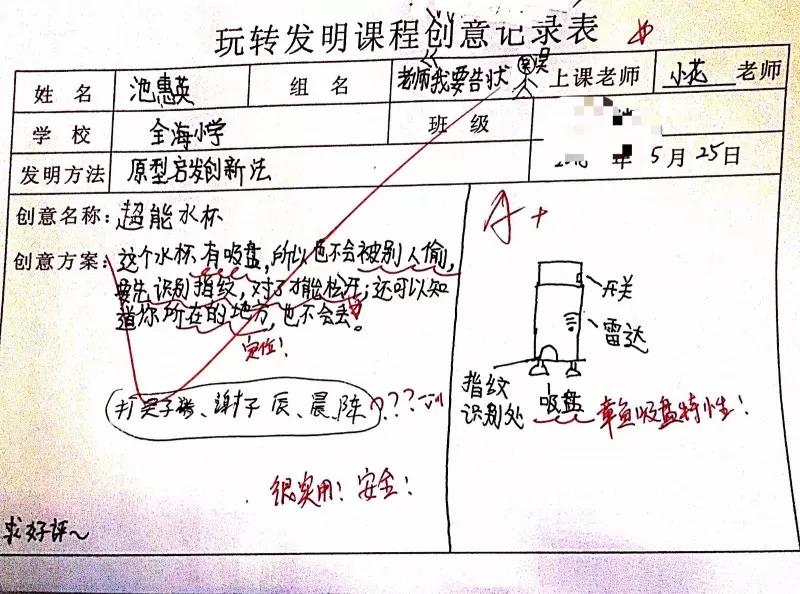 玩转发明课程创意记录表
姓名 池惠英 组名 老师我要告状 上课老师 小花 老师
学校 全海小学 班级
发明方法 原型启发创新法 年 5月25日
创意名称：超能水杯
创意方案：这个水杯有吸盘，所以也不会被别人偷，
要先识别指纹，对了才能松开；还可以知
道你所在的地方，也不会丢。
定位！
打 吴子 、谢子辰、晨、陈 ？？？
很实用！安全！
求好评～
A+
开关
雷达
指纹
识别处
吸盘
章鱼吸盘特性！